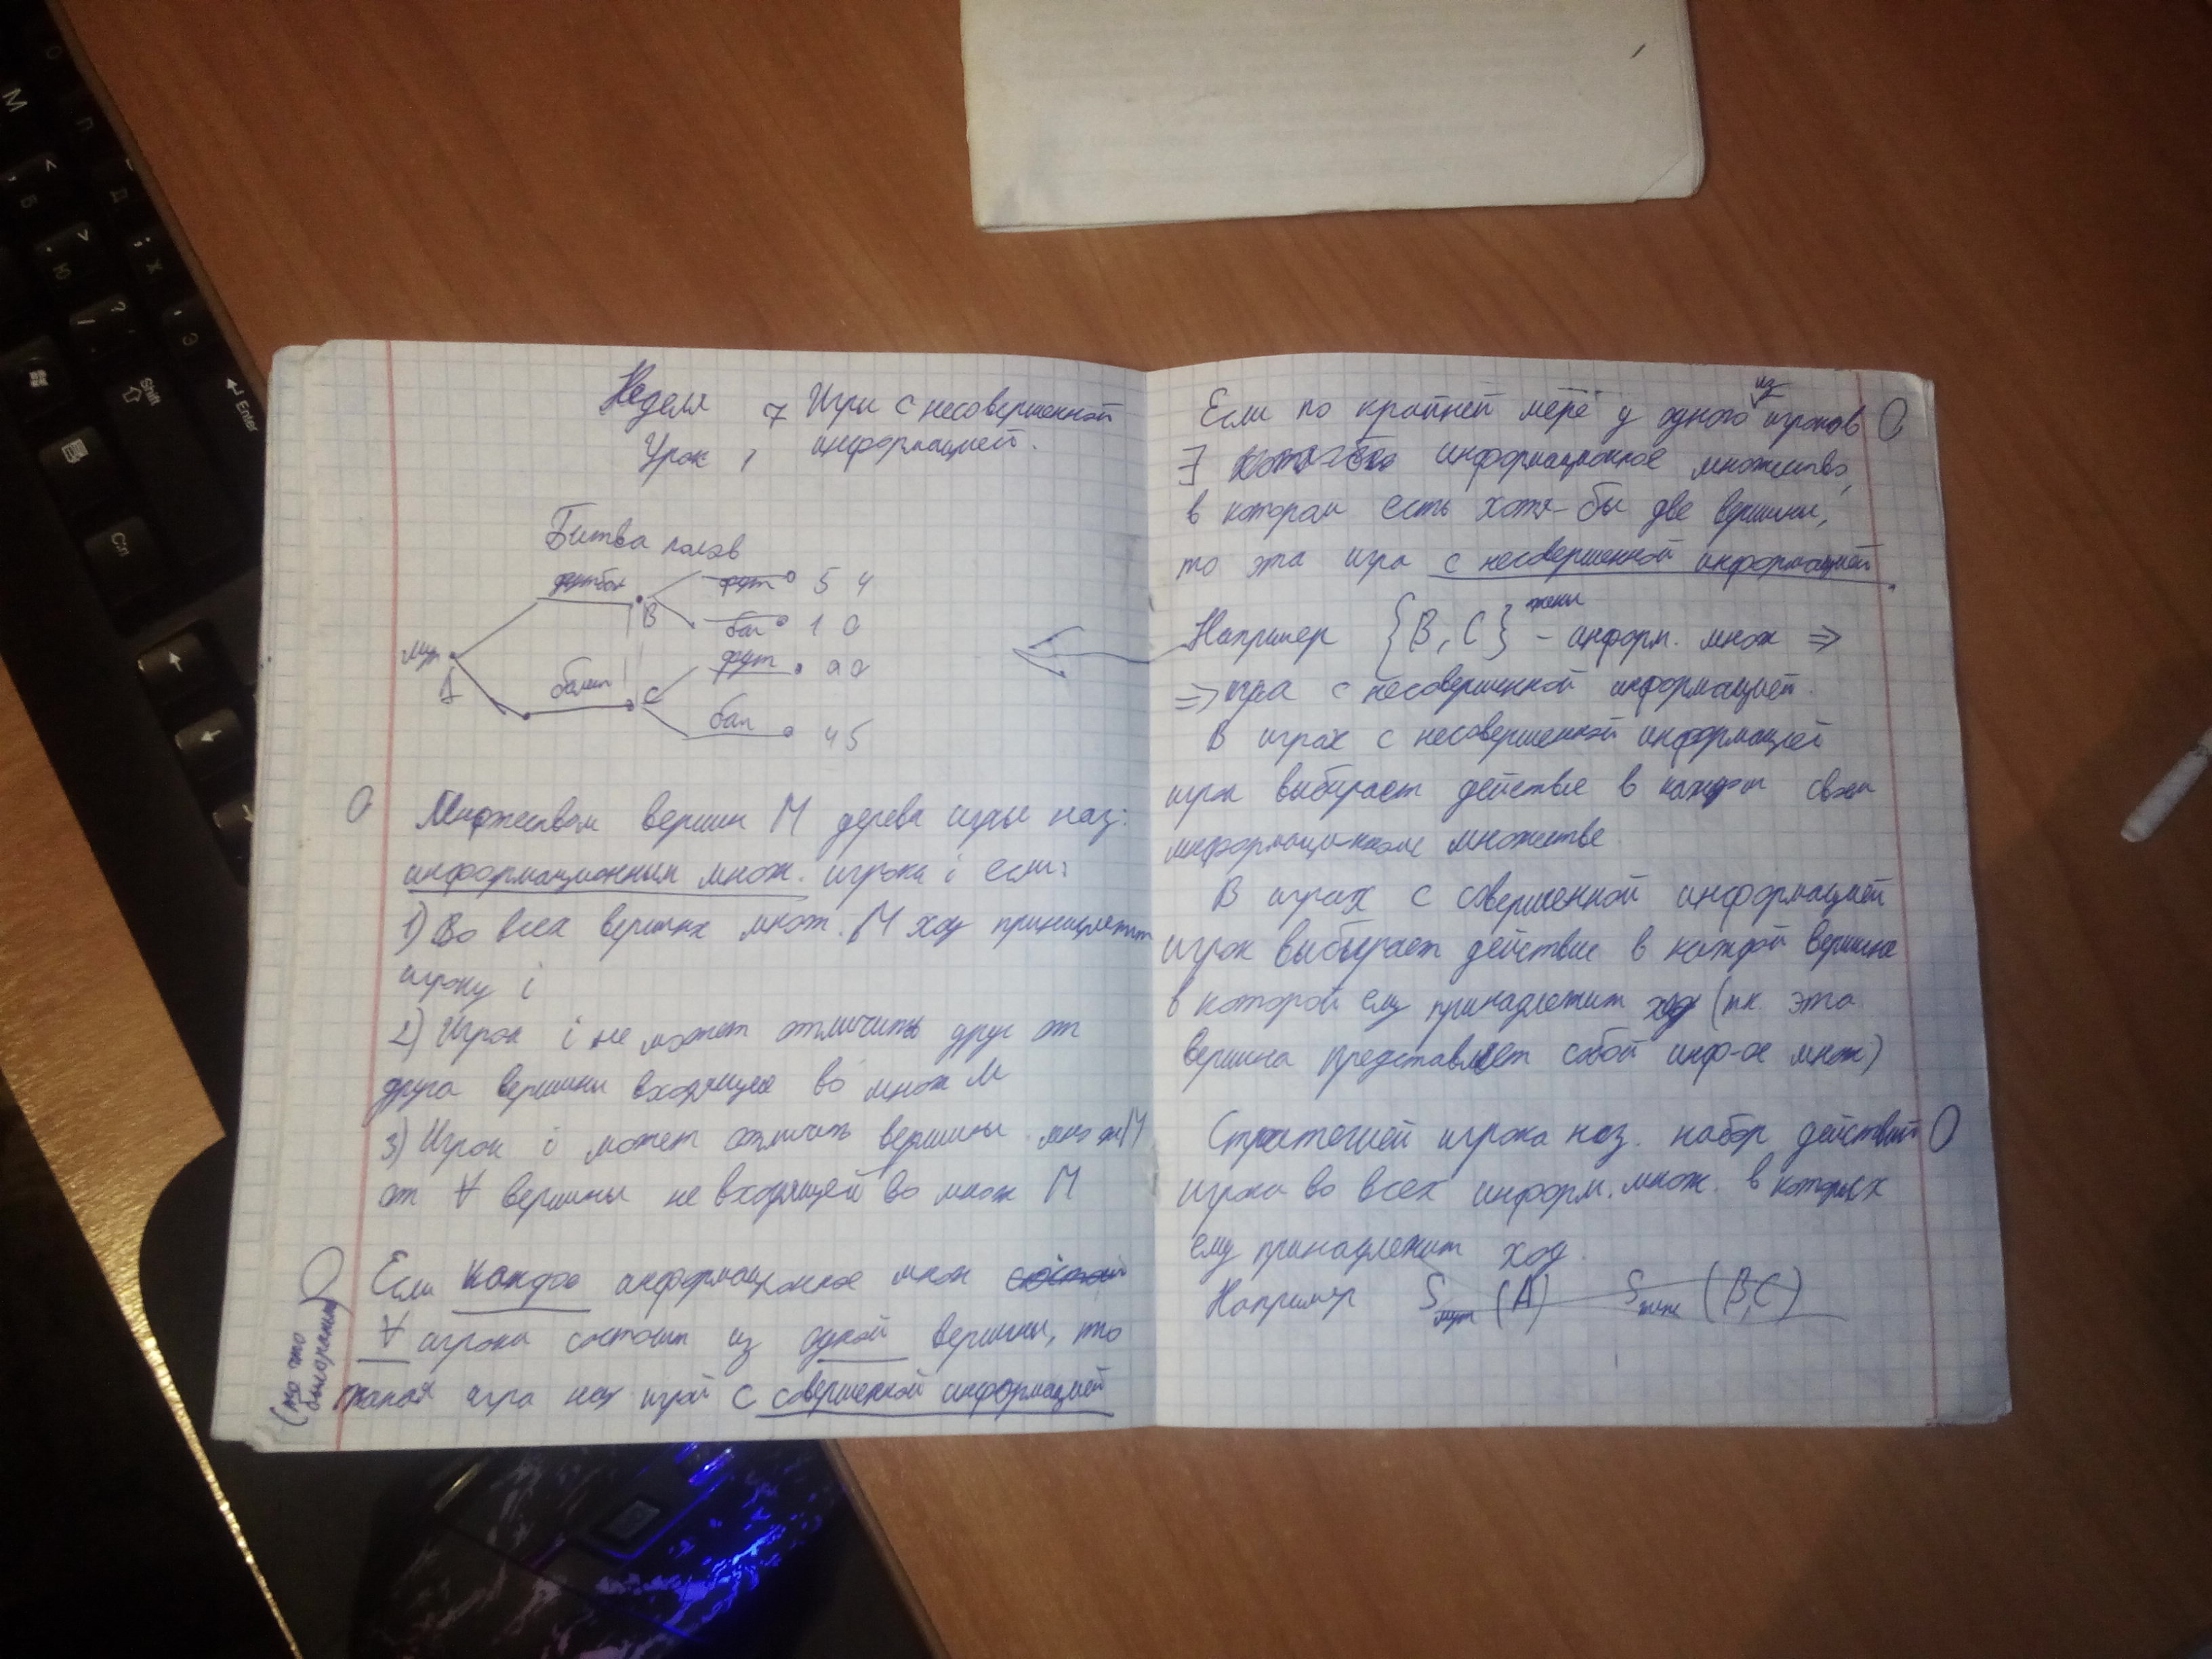 Неделя 7 Игры с несовершенной
Урок 1 информацией.
Битва полов
муж
A
футбол
B
фут 5 4
бал 1 0
балет
C
фут 0 0
бал 4 5
О Множеством вершин M дерева игры наз:
информационным множ. игрока i если:
1) Во всех вершинах множ. M ход принадлежит
игроку i
2) Игрок i не может отличить друг от
друга вершины входящие во множ M
3) Игрок i может отличить вершины множ M
от ∀ вершины не входящей во множ M
О Если каждое информационное множ
∀ игрока состоит из одной вершины, то
такая игра наз игрой с совершенной информацией
(то что
было раньше)
Если по крайней мере у одного из игроков О
∃ информационное множество,
в котором есть хотя-бы две вершины,
то эта игра с несовершенной информацией.
Например {B, C} жены - информ. множ ⇒
⇒ игра с несовершенной информацией.
В играх с несовершенной информацией
игрок выбирает действие в каждом своем
информационном множестве.
В играх с совершенной информацией
игрок выбирает действие в каждой вершине
в которой ему принадлежит ход (тк. эта
вершина представляет собой инф-ое множ)
Стратегией игрока наз. набор действий О
игрока во всех информ. множ. в которых
ему принадлежит ход.
Например S муж (A) S жены (B,C)
Shift
Enter
Ctrl